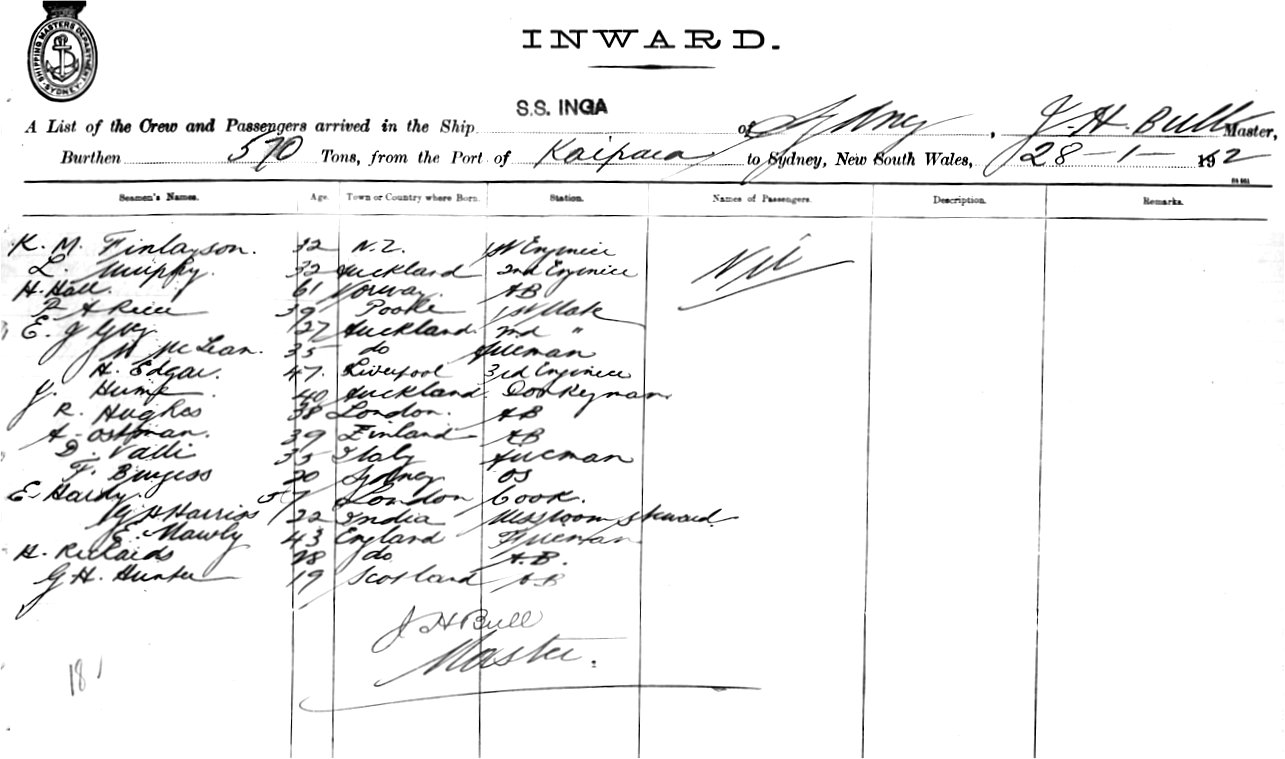 SHIPPING MASTERS DEPARTMENT SYDNEY
INWARD.
S.S. INGA
A List of the Crew and Passengers arrived in the Ship of Sydney, J. H. Bull Master,
Burthen 570 Tons, from the Port of Kaipara to Sydney, New South Wales, 28-1-1912
Seamen's Names. Age. Town or Country where Born. Station. Names of Passengers. Description. Remarks.
K. M. Finlayson. 32 N.Z. 1st Engineer Nil
L. Murphy. 32 Auckland 2nd Engineer
H. Hall. 61 Norway. AB
39 1st Mate
E. J 27 Auckland 2nd "
McLean. 35 do Fireman
H. Edgar. 47. Liverpool 3rd Engineer
J. Hume 40 Auckland Donkeyman
R. Hughes 38 London. AB
A. Ostman. 39 Finland AB
D. Valli 35 Italy Fireman
F. Burgess 20 Sydney OS
E. Hardy. 57 London Cook.
G H Harriss 22 India Messroom Steward
E. Mawly 43 England Fireman
H. Richards 28 do A.B.
G. H. Hunter 19 Scotland AB
J H Bull
Master.
18